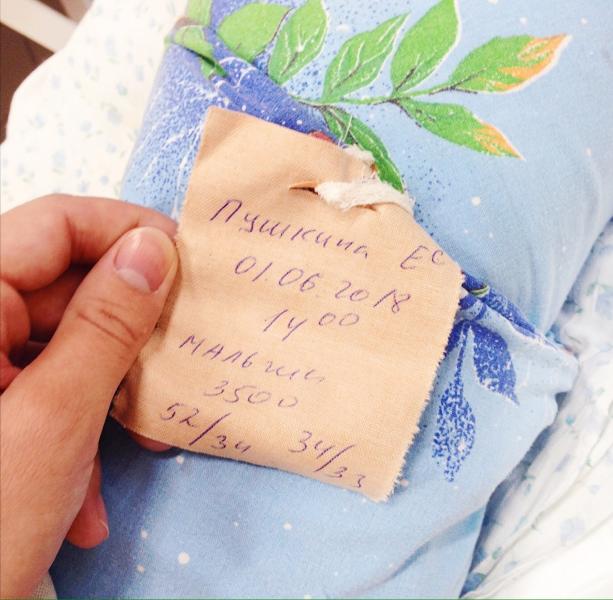 Пушкина ЕС
01.06.2018
14 00
мальчик
3500
52/34 34/33